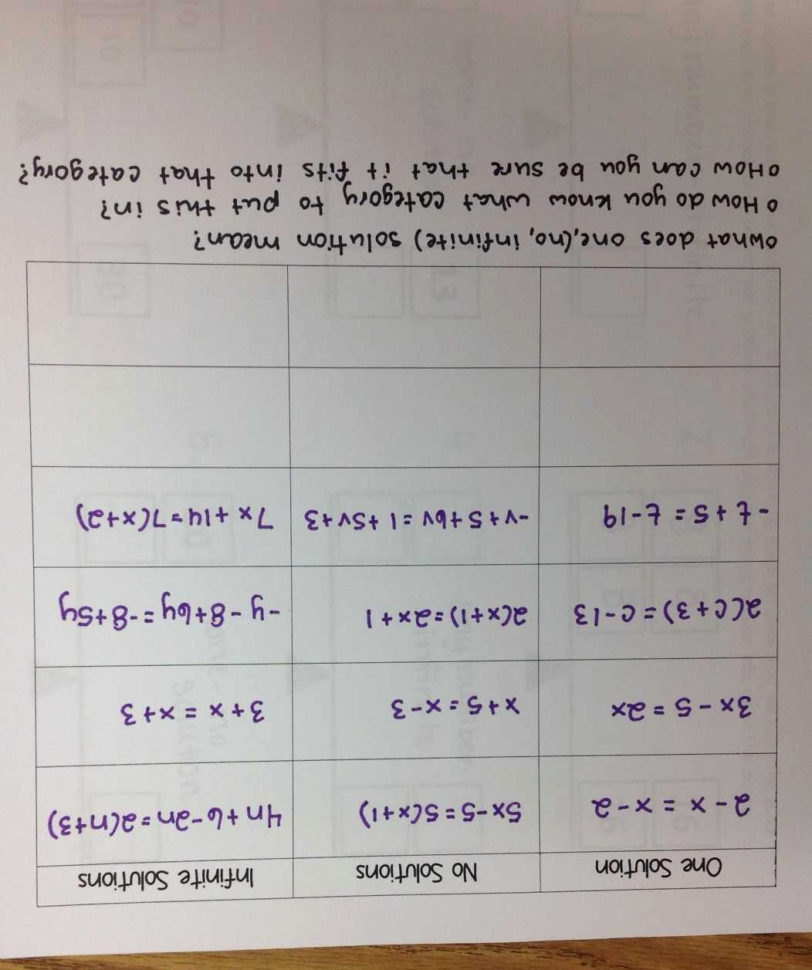 One Solution No Solutions Infinite Solutions
2-x = x-2 5x-5=5(x+1) 4n+6-2n=2(n+3)
3x-5=2x x+5=x-3 3+x=x+3
2(c+3)=c-13 2(x+1)=2x+1 -y-8+6y=-8+5y
-t+5=t-19 -v+5+6v=1+5v+3 7x+14=7(x+2)
o What does one,(no, infinite) solution mean?
o How do you know what category to put this in?
o How can you be sure that it fits into that category?